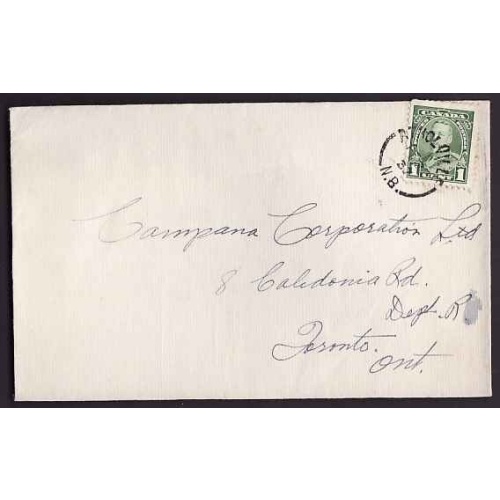 CANADA
1 1
N.B.
Campana Corporation Ltd
8 Caledonia Rd.
Dept. R
Toronto.
Ont.